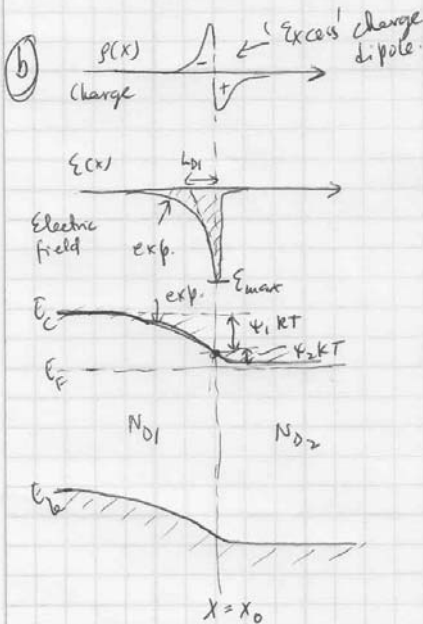 (b)
ρ(x)
Charge
-
+
'Excess' charge
dipole.
ℰ(x)
L_D1
Electric
field
exp.
ℰ_max
exp.
E_C
ψ₁ kT
ψ₂ kT
E_F
N_D1
N_D2
E_v
x = x₀